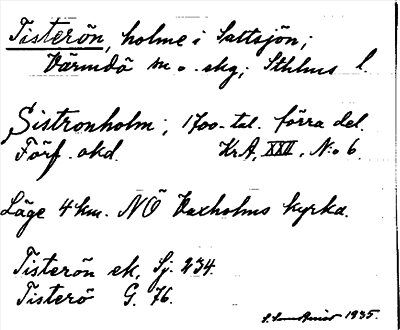 Tisterön, holme i Saltsjön;
Värmdö sn o. skg; Sthlms l.
Sistronholm; 1700-tal. förra del.
Förf. okd. KrA, XXII, No 6.
Läge 4 km. NÖ Vaxholms kyrka.
Tisterön ek, Sj. 234.
Tisterö G. 76.
1935.